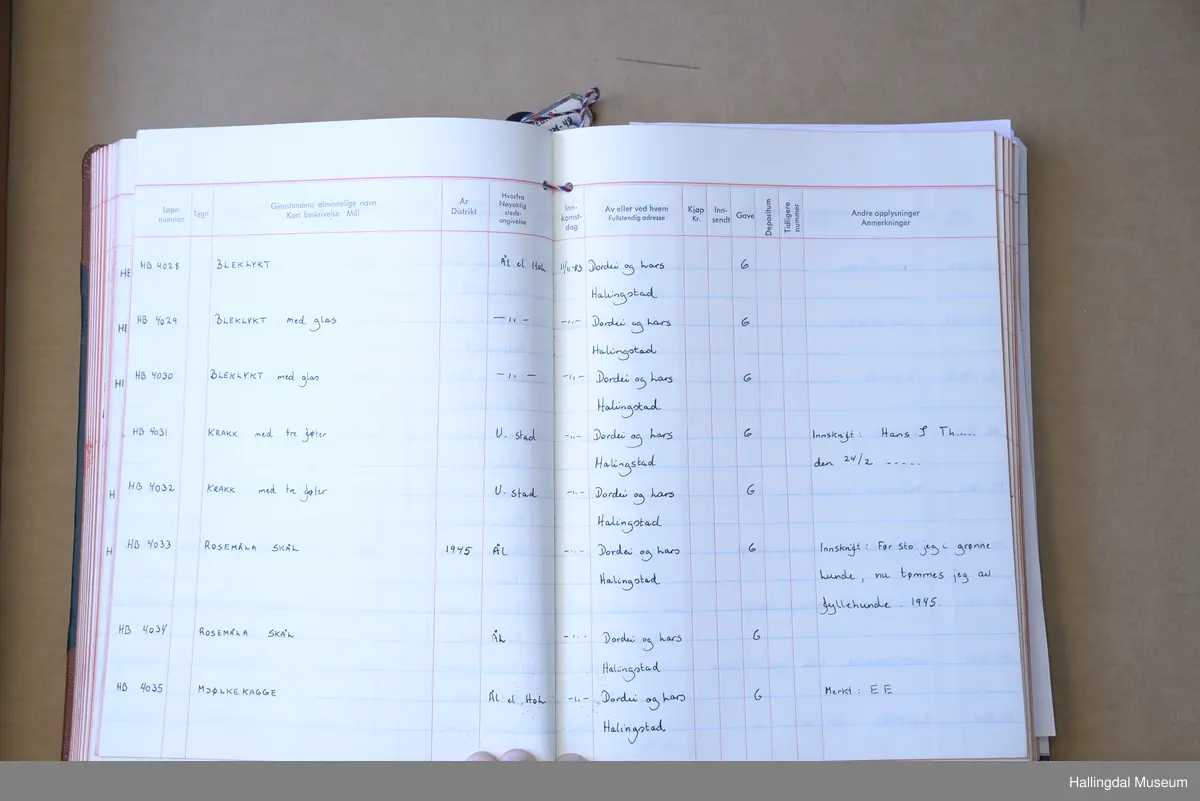 Løpn-nummer Tegn Gjenstandens alminnelige navn Kort beskrivelse Mål År Distrikt Hvorfra Nøyaktig steds-angivelse Inn-komst-dag Av eller ved hvem Fullstendig adresse Kjøp Kr. Inn-sendt Gave Depositum Tidligere nummer Andre opplysninger Anmerkninger
HB 4028 BLEKLYKT Ål el Hol 11/11-83 Dordei og Lars G
Halingstad
HB 4029 BLEKLYKT med glas —"— -"- Dordei og Lars G
Halingstad
HB 4030 BLEKLYKT med glas —"— -"- Dordei og Lars G
Halingstad
HB 4031 KRAKK med tre føter U. stad -"- Dordei og Lars G Innskrift: Hans S Th.....
Halingstad den 24/2 -----
HB 4032 KRAKK med tre føter U. stad -"- Dordei og Lars G
Halingstad
HB 4033 ROSEMÅLA SKÅL 1945 ÅL -"- Dordei og Lars G Innskrift: Før sto jeg i grønne
Halingstad lunde, nu tømmes jeg av
fyllehunde. 1945.
HB 4034 ROSEMÅLA SKÅL ÅL -"- Dordei og Lars G
Halingstad
HB 4035 MJØLKEKAGGE Ål el Hol -"- Dordei og Lars G Merkt: E E
Halingstad
Hallingdal Museum